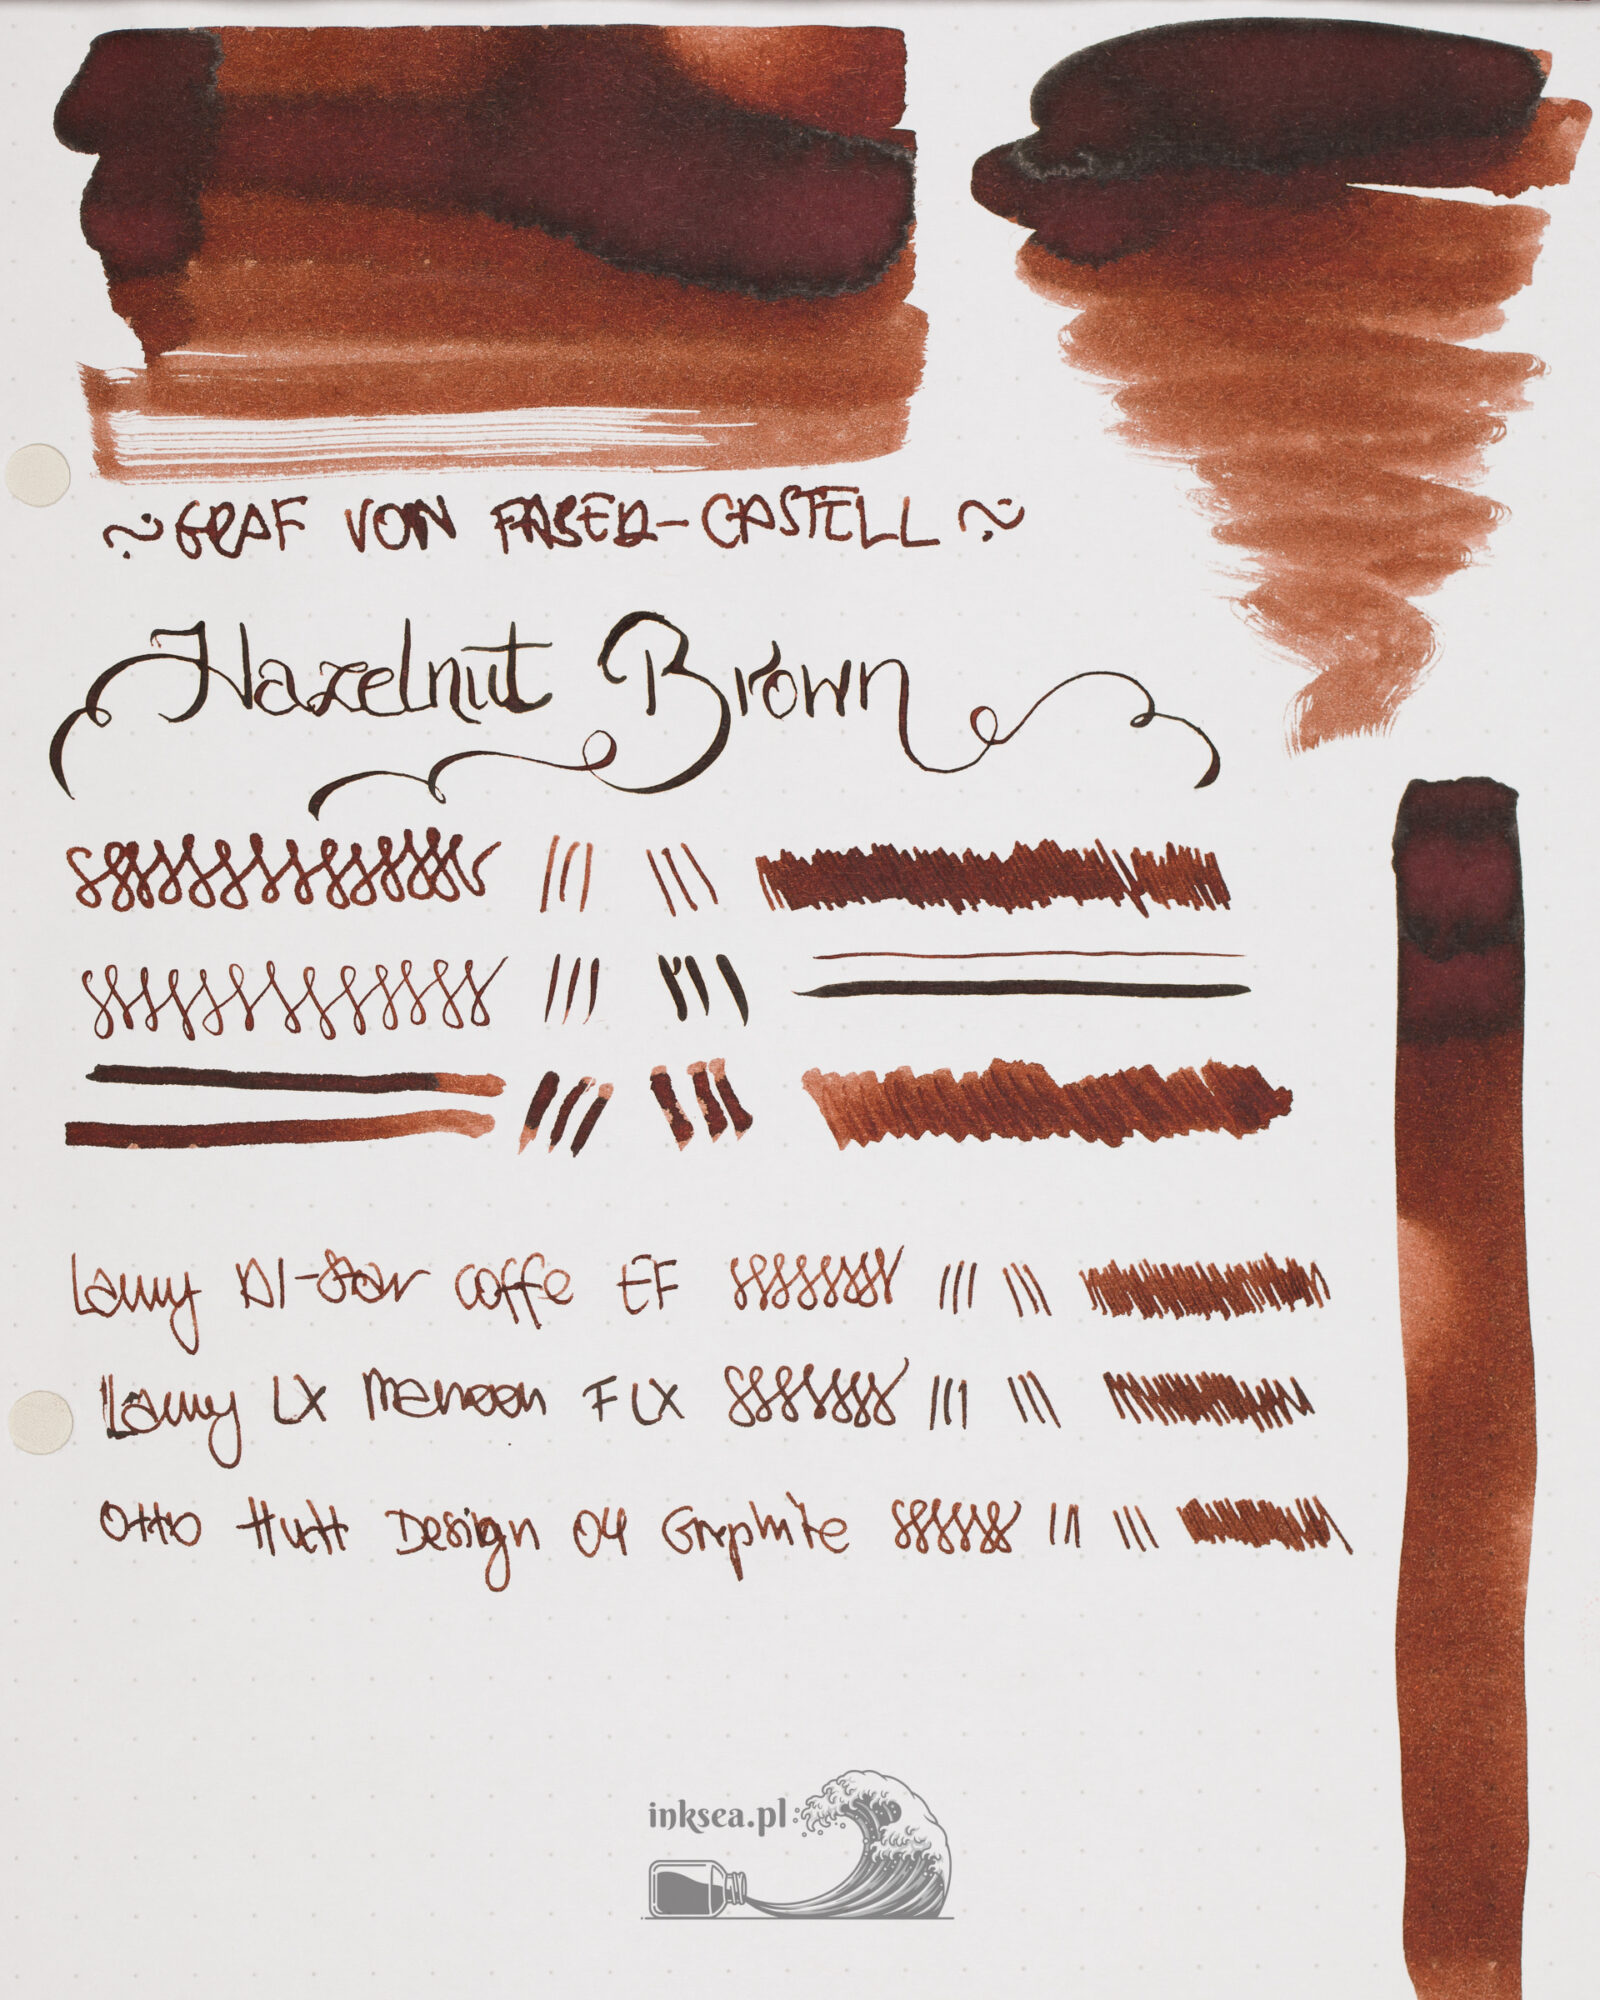 ~ GRAF VON FABER-CASTELL ~
Hazelnut Brown
Lamy Al-Star Coffe EF
Lamy LX Marroon F LX
Otto Hutt Design 04 Graphite
inksea.pl